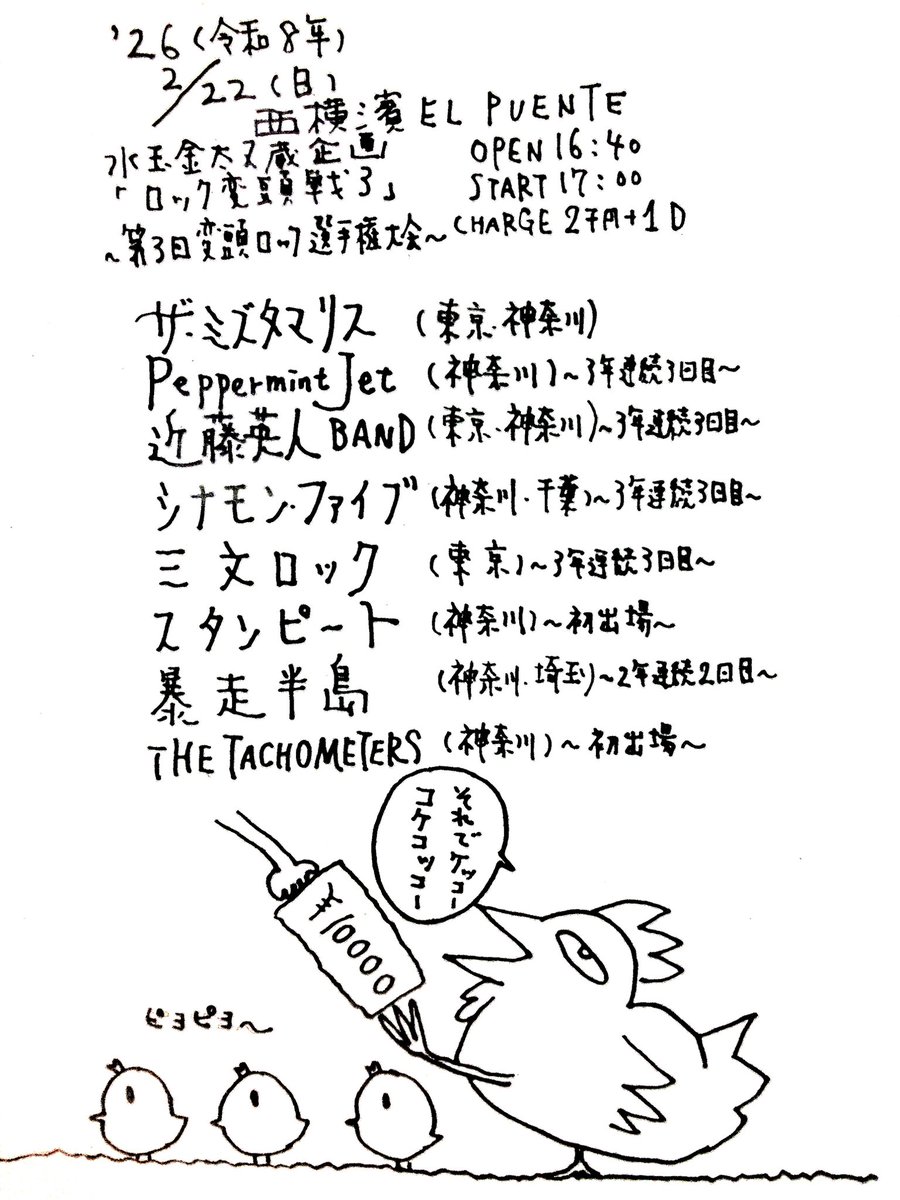 '26(令和8年)
2/22(日)
西横濱 EL PUENTE
水玉金太又蔵企画 OPEN 16:40
「ロック変頭戦3」 START 17:00
~第3回変頭ロック選手権大会~ CHARGE 2千円+1D
ザ・ミズタマリス (東京・神奈川)
Peppermint Jet (神奈川)~3年連続3回目~
近藤英人BAND (東京・神奈川)~3年連続3回目~
シナモン・ファイブ (神奈川・千葉)~3年連続3回目~
三文ロック (東京)~3年連続3回目~
スタンピート (神奈川)~初出場~
暴走半島 (神奈川・埼玉)~2年連続2回目~
THE TACHOMETERS (神奈川)~初出場~
それでケッコー
コケコッコー
¥10000
ピヨピヨ~